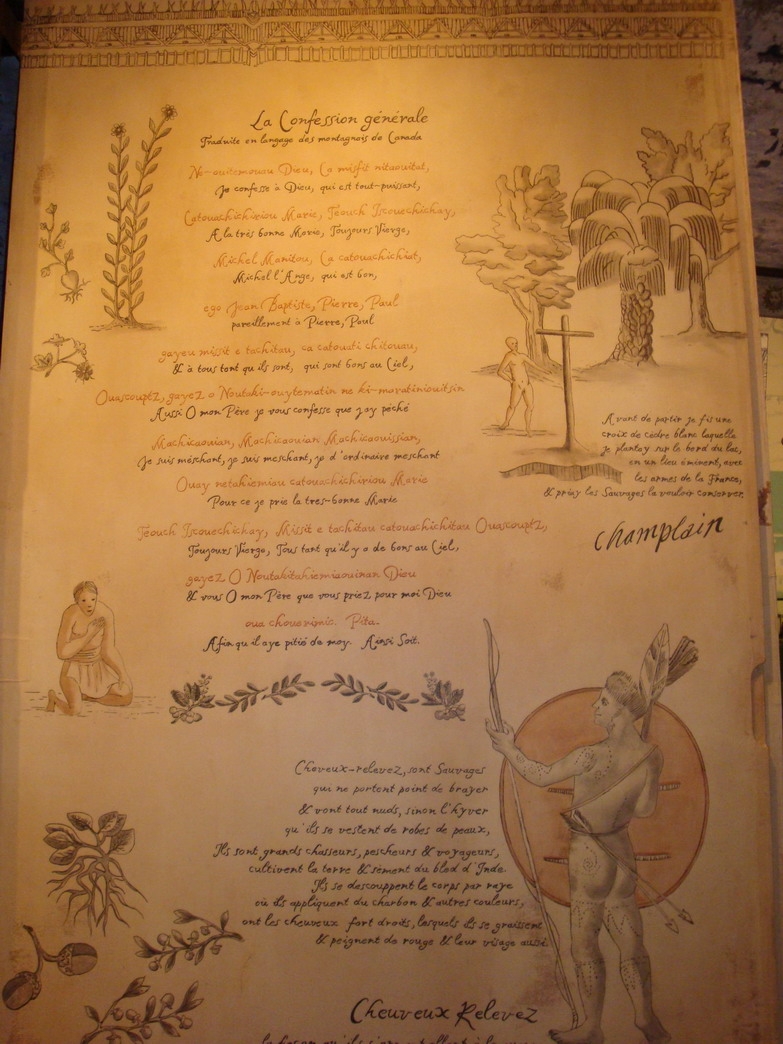 La Confession générale
Traduite en langage des montagnois de Canada
No-ouitemouau Dieu, Ca missit nituouitat,
Je confesse à Dieu, qui est tout-puissant,
Catouachichiriou Marie, Teouch Iscouechichay,
A la très bonne Marie, Toujours Vierge,
Michel Manitou, Ca catouachichiat,
Michel l'Ange, qui est bon,
ego Jean Baptiste, Pierre, Paul
pareillement à Pierre, Paul
gayeu missit e tachitau, ca catouati chitouau,
& à tous tant qu'ils sont, qui sont bons au Ciel,
Ouascouptz, gayez o Noutaki-ouytematin ne ki-moratiniouitsin
Aussi O mon Père je vous confesse que j'ay péché
Machicaouian, Machicaouian Machicaouissian,
Je suis méschant, je suis meschant, je d'ordinaire meschant
Ouay netahiemiau catouachichiriou Marie
Pour ce je prie la tres-bonne Marie
Teouch Iscouechichay, Missit e tachitau catouachichitau Ouascouptz,
Toujours Vierge, Tous tant qu'il y a de bons au Ciel,
gayez O Noutakitahiemiaouinan Dieu
& vous O mon Père que vous priez pour moi Dieu
oua chouerimic. Pita.
Afin qu'il aye pitié de moy. Ainsi Soit.
Avant de partir je fis une
croix de cèdre blanc laquelle
je plantay sur le bord du lac,
en un lieu éminent, avec
les armes de la France,
& priay les Sauvages la vouloir conserver,
Champlain
Cheveux-relevez, sont Sauvages
qui ne portent point de brayer
& vont tout nuds, sinon l'hyver
qu'ils se vestent de robes de peaux,
Ils sont grands chasseurs, pescheurs & voyageurs,
cultivent la terre & sèment du bled d'Inde.
Ils se descouppent le corps par raye
où ils appliquent du charbon & autres couleurs,
ont les cheuveux fort droits, lesquels ils se graissent
& peignent de rouge & leur visage aussi.
Cheuveux Relevez